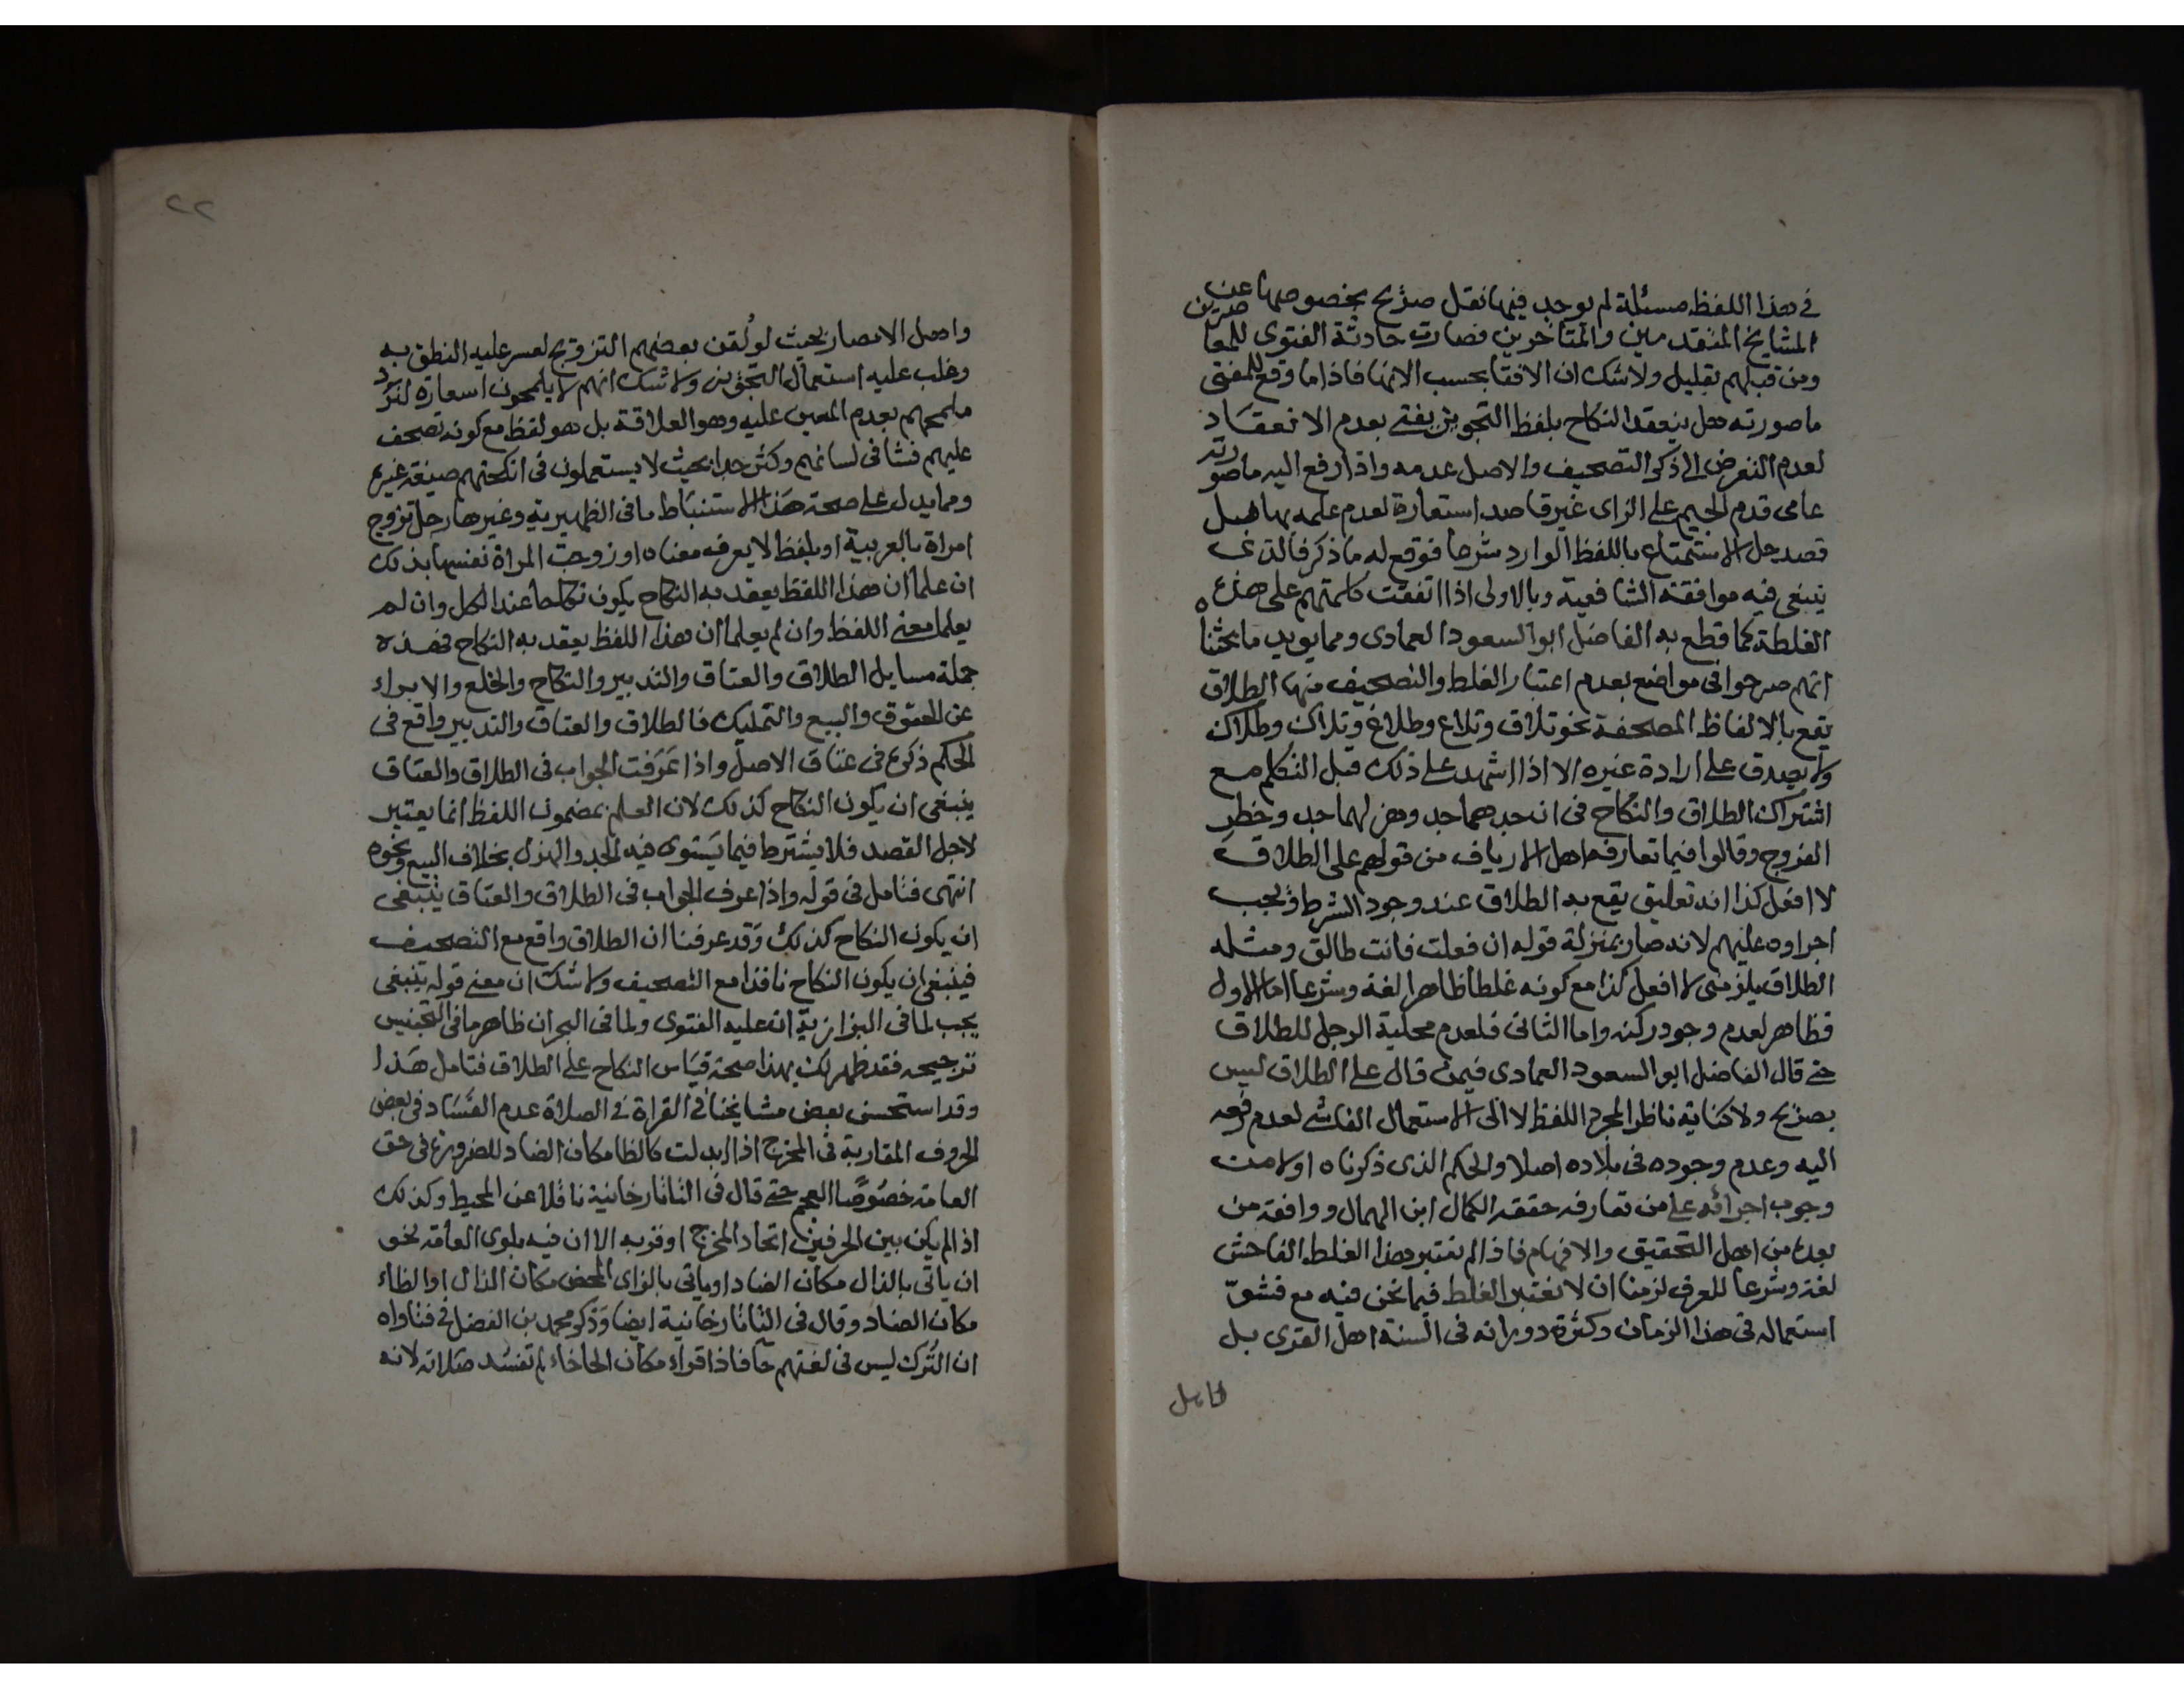 في هذا اللفظ مسئلة لم يوجد فيها نقل صريح بخصوصها عن
المشايخ المتقدمين والمتاخرين فصارت حادثة الفتوى للمعاصرين
ومن قبلهم بقليل ولا شك ان الافتا بحسب الانها فاذا ما وقع للمفتى
ما صورته هل ينعقد النكاح بلفظ التجويز يفتى بعدم الانعقاد
لعدم التعرض الى ذكر التصحيف والاصل عدمه واذا رفع اليه ما صورته
عامى قدم الجيم على الزاى غير قاصد استعارة لعدم علمه بها بل
قصد حل الاستمتاع باللفظ الوارد شرعا فوقع له ما ذكر فالذى
ينبغى فيه موافقة الشافعية وبالاولى اذا اتفقت كلمتهم على هذه
الغلطة كما قطع به الفاضل ابو السعود العمادى ومما يويد ما بحثنا
انهم صرحوا فى مواضع بعدم اعتبار الغلط والتصحيف منها الطلاق
يقع بالالفاظ المصحفة نحو تلاق وتلاع وطلاغ وتلاك وطلاك
ولا يصدق على ارادة غيره الا اذا اشهد على ذلك قبل التكلم مع
اشتراك الطلاق والنكاح فى ان جدهما جد وهزلهما جد وخطر
الفروج وقالوا فيما تعارفه اهل الارياف من قولهم على الطلاق
لا افعل كذا انه تعليق يقع به الطلاق عند وجود الشرط ويجب
اجراوه عليهم لانه صار بمنزلة قوله ان فعلت فانت طالق ومثله
الطلاق يلزمنى لا افعل كذا مع كونه غلطا ظاهرا لغة وشرعا اما الاول
فظاهر لعدم وجود ركنه واما الثانى فلعدم محلية الرجل للطلاق
حتى قال الفاضل ابو السعود العمادى فيمن قال على الطلاق ليس
بصريح ولا كناية ناظرا لمجرد اللفظ لا الى الاستعمال الفاشى لعدم رفعه
اليه وعدم وجوده فى بلاده اصلا والحكم الذى ذكرناه اولا من
وجوب اجرائه على من تعارفه حققه الكمال ابن الهمام ووافقه من
بعده من اهل التحقيق والافهام فاذا لم نعتبر هذا الغلط الفاحش
لغة وشرعا للعرف لزمنا ان لا نعتبر الغلط فيما نحن فيه مع فشوّ
استعماله فى هذا الزمان وكثرة دورانه فى السنة اهل القرى بل
واهل الامصار بحيث لو لُقن بعضهم التزويج لعسر عليه النطق به
وغلب عليه استعمال التجويز ولا شك انهم لا يلمحون استعارة لترد
ملمحهم بعدم المعين عليه وهو العلاقة بل هو لفظ مع كونه تصحف
عليهم فشا فى لسانهم وكثر جدا بحيث لا يستعملون فى انكحتهم صيغة غيره
ومما يدل على صحة هذا الاستنباط ما فى الظهيرية وغيرها رجل تزوج
امراة بالعربية او بلفظ لا يعرف معناه او زوجت المراة نفسها بذلك
ان علما ان هذا اللفظ يعقد به النكاح يكون نكاحا عند الكل وان لم
يعلما معنى اللفظ وان لم يعلما ان هذا اللفظ يعقد به النكاح فهذه
جملة مسايل الطلاق والعتاق والتدبير والنكاح والخلع والابراء
عن الحقوق والبيع والتمليك فالطلاق والعتاق والتدبير واقع فى
الحكم ذكره فى عتاق الاصل واذا عَرَفت الجواب فى الطلاق والعتاق
ينبغى ان يكون النكاح كذلك لان العلم بمضمون اللفظ انما يعتبر
لاجل القصد فلا يشترط فيما يستوى فيه الجد والهزل بخلاف البيع ونحوه
انتهى فتامل فى قوله واذا عرف الجواب فى الطلاق والعتاق ينبغى
ان يكون النكاح كذلك وقد عرفنا ان الطلاق واقع مع التصحيف
فينبغى ان يكون النكاح نافذا مع التصحيف ولا شك ان معنى قوله ينبغى
يجب لما فى البزازية ان عليه الفتوى ولما فى البحر ان ظاهر ما فى التجنيس
ترجيحه فقد ظهر لك بهذا صحة قياس النكاح على الطلاق فتامل هذا
وقد استحسن بعض مشايخنا فى القراة فى الصلاة عدم الفساد فى بعض
الحروف المقاربة فى المخرج اذا ابدلت كالظا مكان الضاد للضرورة فى حق
العامة خصوصًا العجم حتى قال فى التاتارخانية ناقلا عن المحيط وكذلك
اذا لم يكن بين الحرفين اتحاد المخرج او قربه الا ان فيه بلوى العامة نحو
ان ياتى بالذال مكان الضاد او ياتى بالزاى المحض مكان الذال او الظاء
مكان الضاد وقال فى التاتارخانية ايضا وذكر محمد بن الفضل فى فتاواه
ان التُرك ليس فى لغتهم حا فاذا قراء مكان الحا خاء لم تفسد صلاته لانه
٢٢